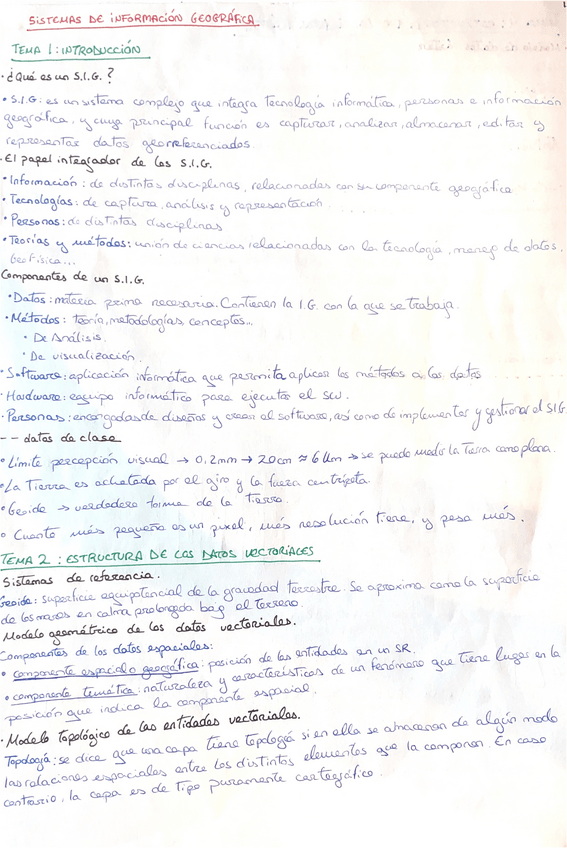 SISTEMAS DE INFORMACIÓN GEOGRÁFICA
TEMA 1: INTRODUCCIÓN
· ¿Qué es un S.I.G.?
• S.I.G: es un sistema complejo que integra tecnología informática, personas e información
geográfica, y cuya principal función es capturar, analizar, almacenar, editar y
representar datos georreferenciados
· El papel integrador de los S.I.G.
• Información: de distintas disciplinas, relacionadas con su componente geográfica
• Tecnologías: de captura, análisis y representación
• Personas: de distintas disciplinas
• Teorías y métodos: unión de ciencias relacionadas con la tecnología, manejo de datos,
Geofísica...
Componentes de un S.I.G.
• Datos: materia prima necesaria. Contienen la I.G. con la que se trabaja.
• Métodos: teoría, metodologías, conceptos...
• De Análisis.
• De visualización.
• Software: aplicación informática que permita aplicar los métodos a los datos
• Hardware: equipo informático para ejecutar el sw.
• Personas: encargadas de diseñar y crear el software, así como de implementar y gestionar el SIG
-- datos de clase
• Límite percepción visual → 0,2mm → 20cm ≈ 6 km → se puede medir la Tierra como plana.
• La Tierra es achatada por el giro y la fuerza centrípeta.
• Geoide → verdadera forma de la Tierra.
• Cuanto más pequeño es un pixel, más resolución tiene, y pesa más.
TEMA 2: ESTRUCTURA DE LOS DATOS VECTORIALES
Sistemas de referencia.
Geoide: superficie equipotencial de la gravedad terrestre. Se aproxima como la superficie
de los mares en calma prolongada bajo el terreno.
Modelo geométrico de los datos vectoriales.
Componentes de los datos espaciales:
• componente espacial o geográfica: posición de las entidades en un SR.
• componente temática: naturaleza y características de un fenómeno que tiene lugar en la
posición que indica la componente espacial.
· Modelo topológico de las entidades vectoriales.
Topología: se dice que una capa tiene topología si en ella se almacenan de algún modo
las relaciones espaciales entre los distintos elementos que la componen. En caso
contrario, la capa es de tipo puramente cartográfico.